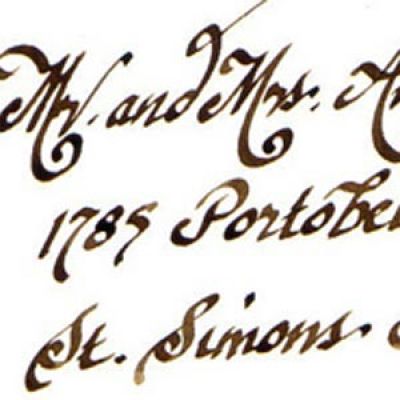 Mr. and Mrs. A
1785 Portobe
St. Simons.